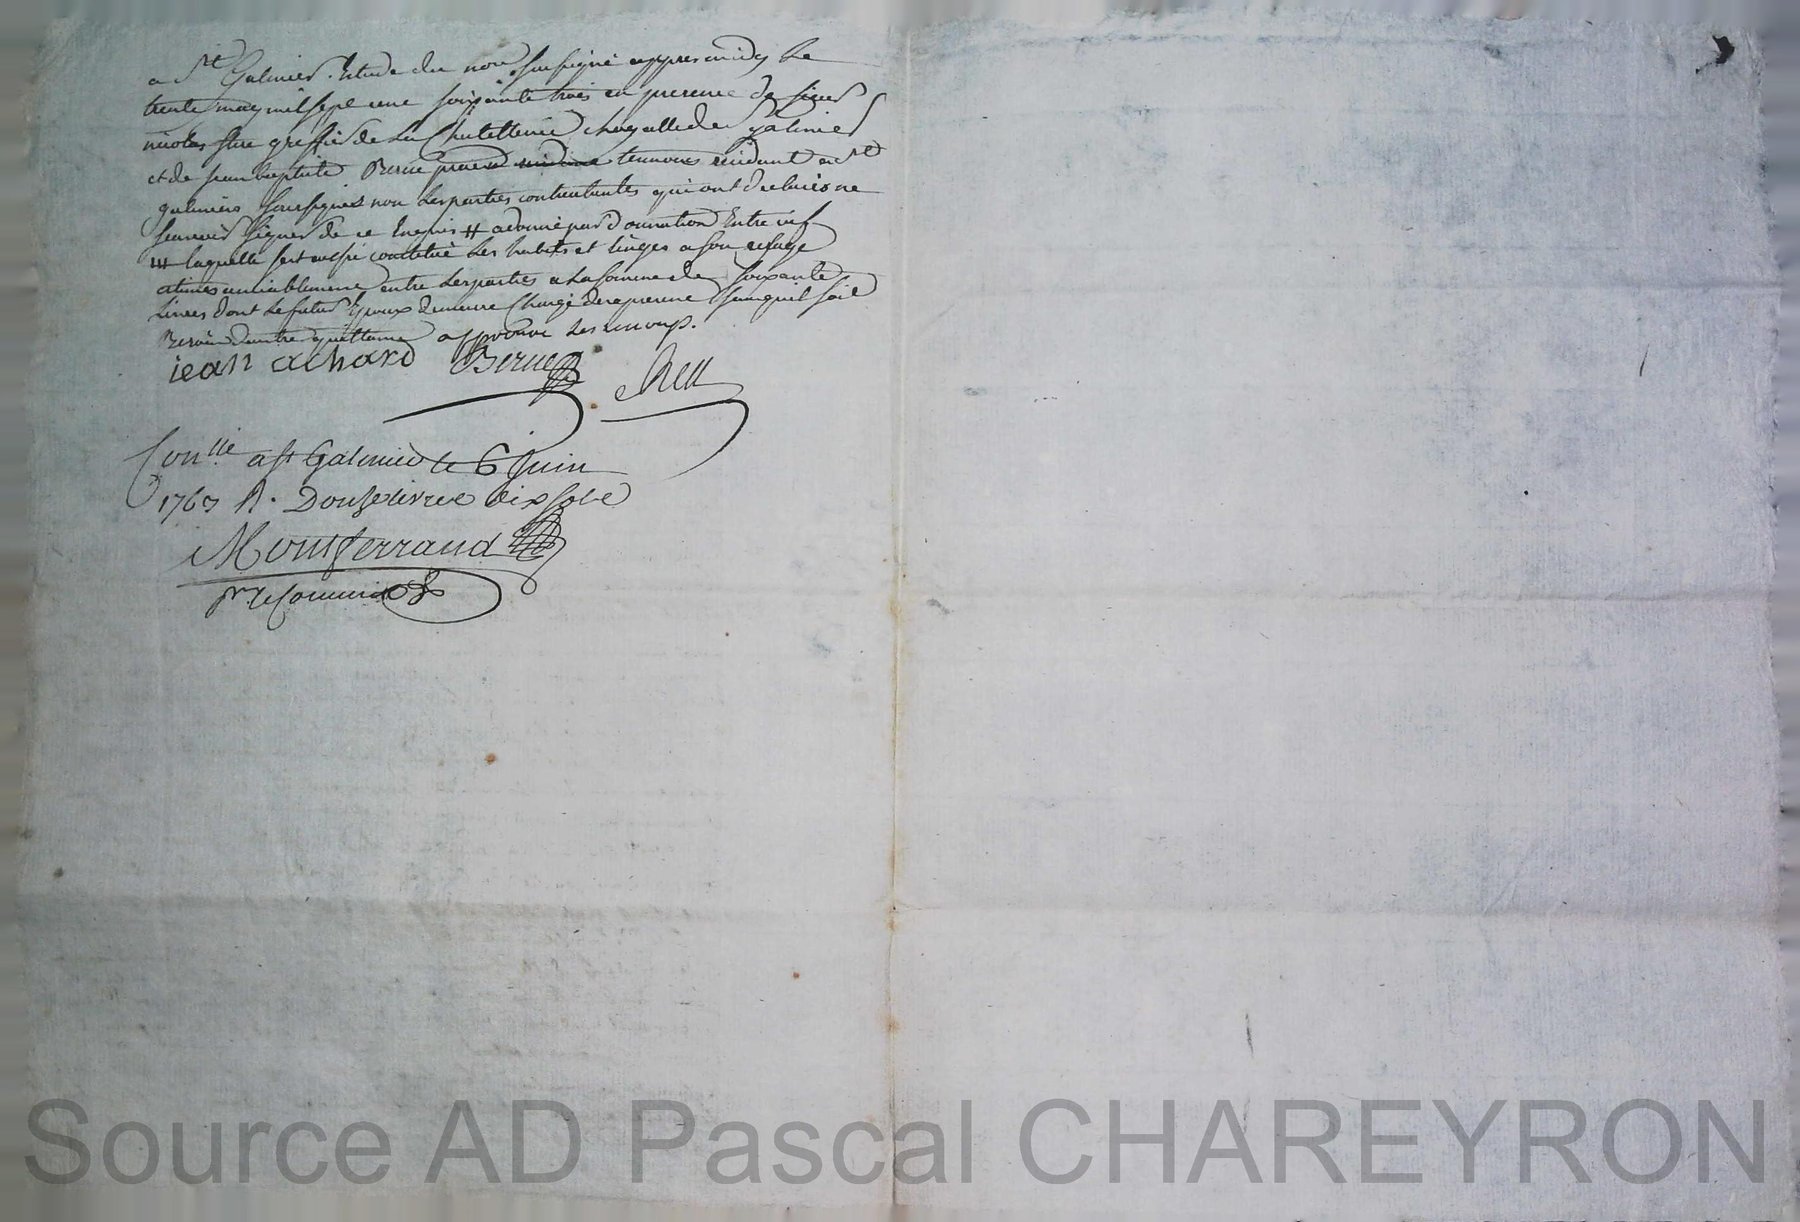 a St Galmier Etude du nore soussigné appres midy le
trente may mil sept cent soixante trois en presence de sieur
nicolas greffier de la Chatellenie Royalle de St galmier
et de jean baptiste Berne temoins residant a St
galmier soussignés non les parties contractantes qui ont declaré ne
scavoir signer de ce enquis # a donné par donnation Entre vifs
## laquelle sest aussi constitué les habits et linges a son usage
estimés amiablement entre les parties a la somme de soixante
Livres dont le futur Epoux demeure Chargé des a present sans quil soit
Besoin dautre quittance approuvé les renvoys.
jean achard Berne
Conllé a St Galmier le 6 Juin
1763 R. Douse livres dix sols
Montferrand
pr le Commis
Source AD Pascal CHAREYRON